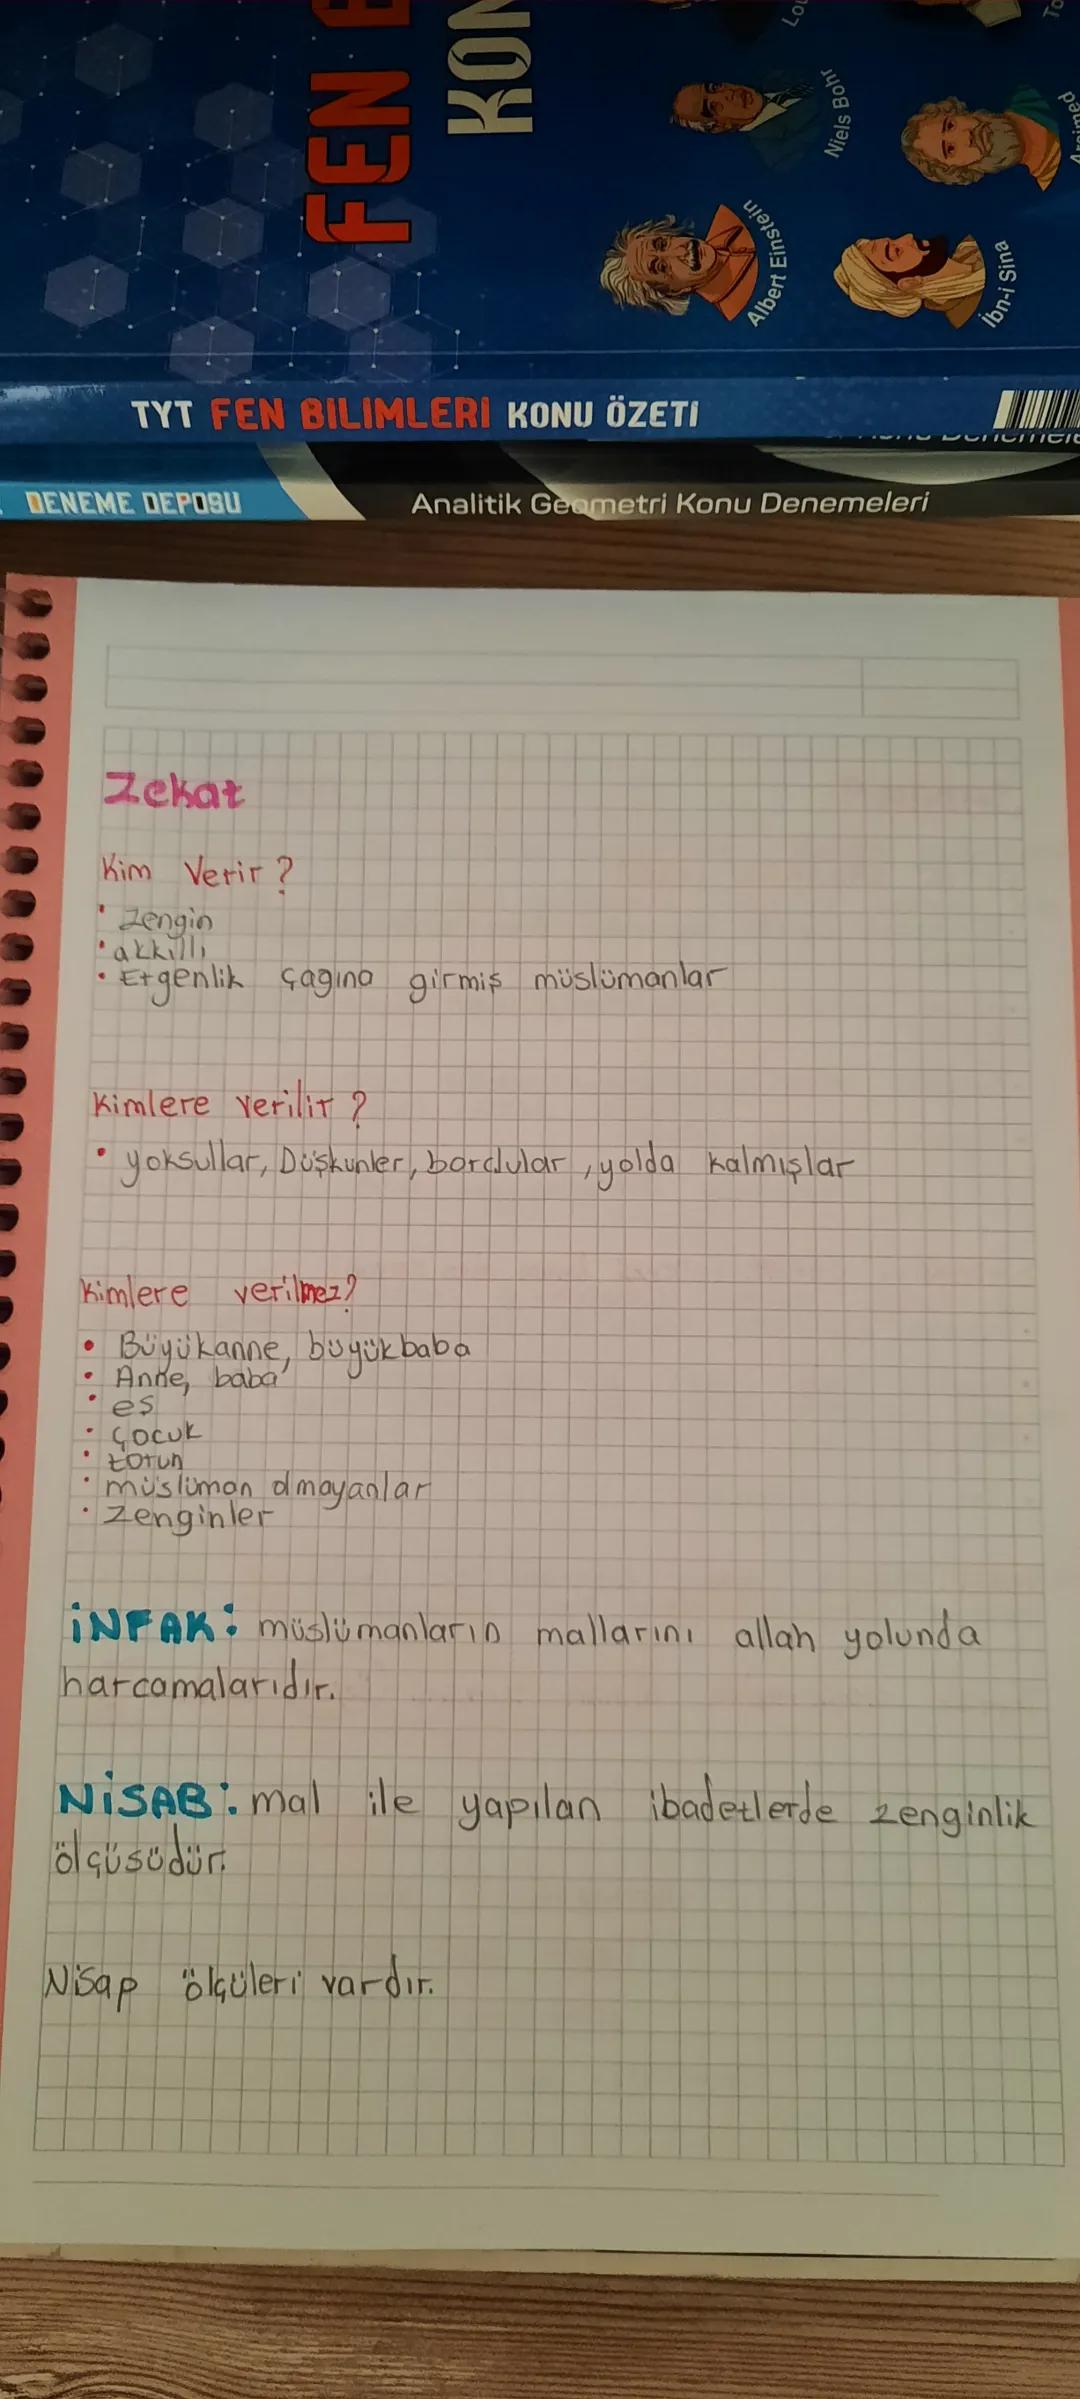 FEN
KON
Niels Bohr
Albert Einstein
İbn-i Sina
TYT FEN BİLİMLERİ KONU ÖZETİ
DENEME DEPOSU
Analitik Geometri Konu Denemeleri
Zekat
Kim Verir?
• Zengin
• akkıllı
• Ergenlik çagına girmiş müslümanlar
Kimlere verilir?
• yoksullar, Düşkunler, borclular, yolda kalmışlar
Kimlere verilmez?
• Büyükanne, büyükbaba
• Anne, baba
• eş
• çocuk
• torun
• müslüman olmayanlar
• Zenginler
iNFAK: müslümanların mallarını allah yolunda
harcamalarıdır.
NiSAB: mal ile yapılan ibadetlerde zenginlik
ölçüsüdür.
Nisap ölçüleri vardır.